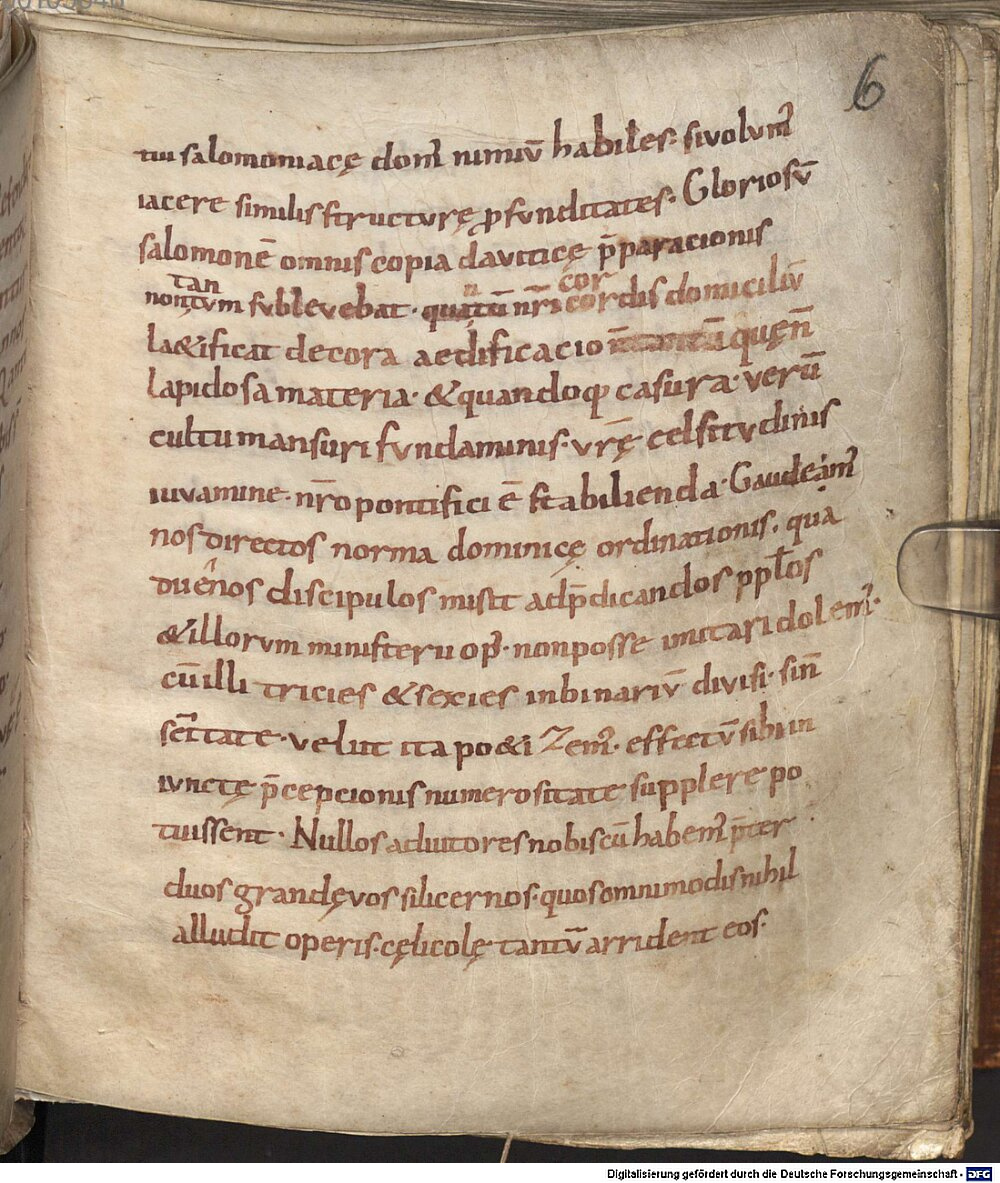 6
tui salomoniacę dom᷒ nimiū habiles. si volum᷒
iacere similis structurę ꝓfunditates. Gloriosū
salomonē omnis copia dauiticę p̄paracionis
tan n cor
nontum sublevebat. quatū nr̄i cordis domiciliū
la&ificat decora aedificacio quęn̄
lapidosa materia. & quandoq; casura. verū
cultu mansuri fundaminis. vrę̄ celsitudinis
iuvamine. nr̄o pontifici ē stabilienda. Gaudeam᷒
nos directos norma dominicę ordinationis. qua
duenos discipulos misit ad p̄dicandos pplōs
& illorum ministerii op᷒. non posse imitari dolem᷒.
cū illi tricies & sexies in binariū divisi. sin̄
velut ita po&i Zem᷒. effectū sibi in
iunctę p̄cepcionis numerositate supplere po
tuissent. Nullos adiutores nobiscū habem᷒ p̄ter
duos grandęvos silicernos. quos omnimodis nihil
alludit operis. cęlicolę tantū arrident eos.
Digitalisierung gefördert durch die Deutsche Forschungsgemeinschaft - DFG